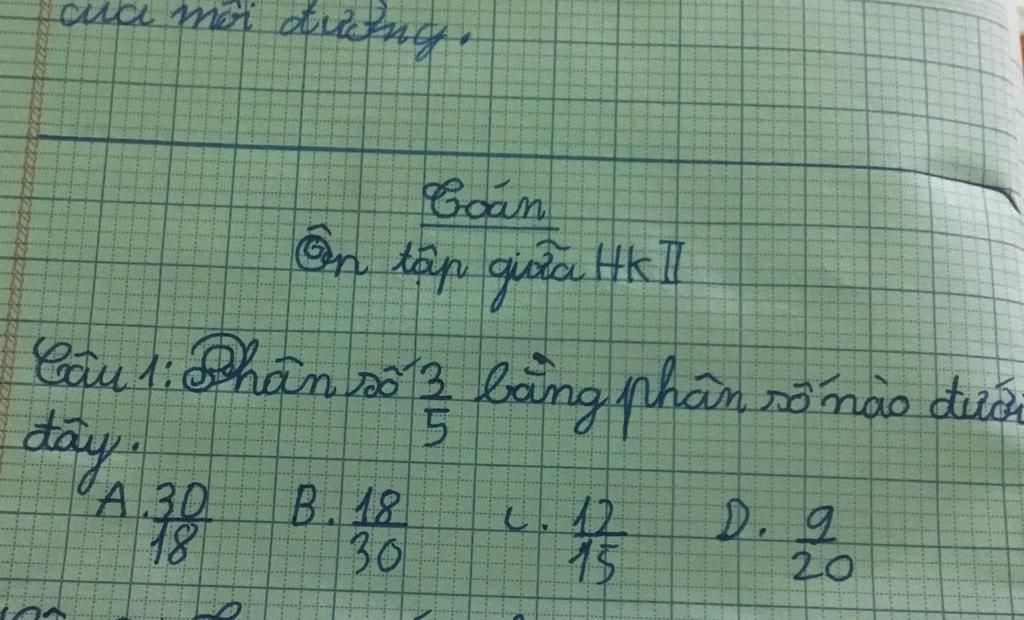 của môi đường.
Toán
Ôn tập giữa HK II
Câu 1: Phân số 3/5 bằng phân số nào dưới
đây.
A. 30/18 B. 18/30 C. 12/15 D. 9/20